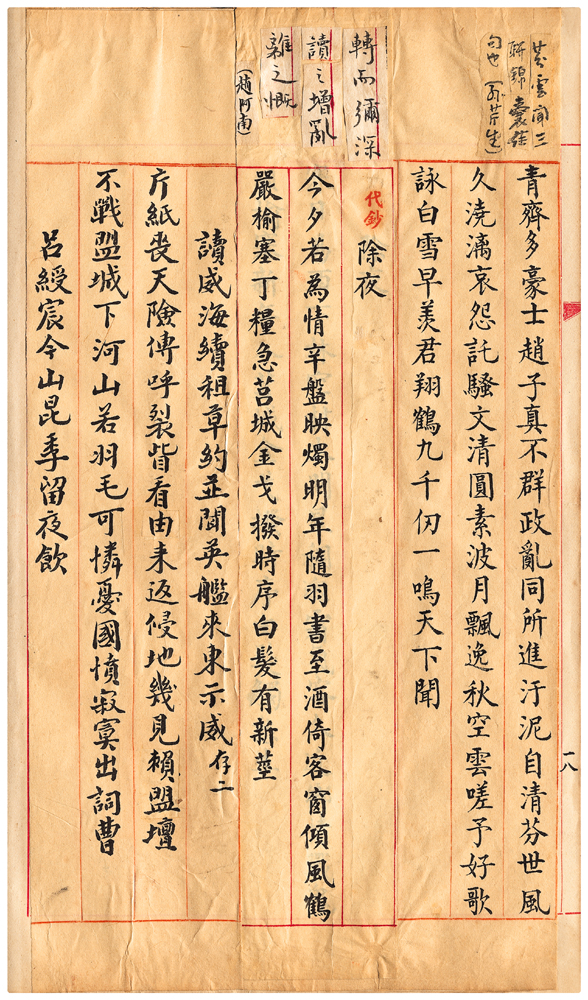 芸雲閣三
聯錦囊绝
句也（孫芹生）
轉而彌深
讀之增亂
離之慨
（趙阿南）
青齊多豪士趙子真不群政亂同所進汙泥自清芬世風
久澆漓哀怨託騷文清圓素波月飄逸秋空雲嗟予好歌
詠白雪早羨君翔鶴九千仞一鳴天下聞
代鈔
除夜
今夕若為情辛盤映燭明年隨羽書至酒倚客窗傾風鶴
嚴榆塞丁糧急莒城金戈撥時序白髮有新莖
讀威海續租草約並聞英艦來東示威 存二
片紙喪天險傳呼裂眥看由来返侵地幾見賴盟壇
不戰盟城下河山若羽毛可憐憂國憤寂寞出詞曹
呂綬宸今山昆季留夜飲
一八